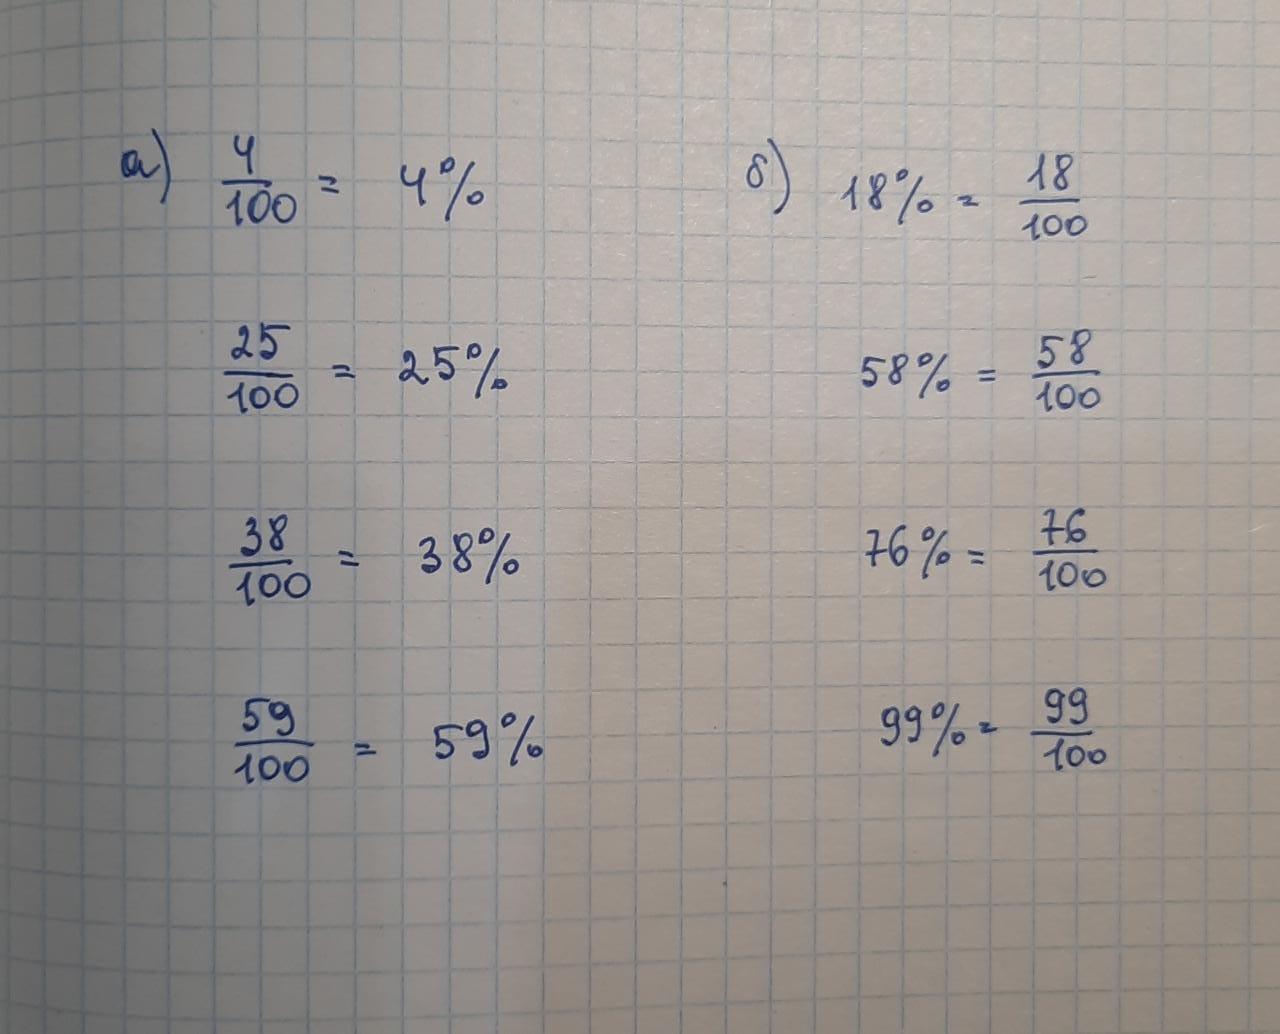 а) 4/100 = 4%
25/100 = 25%
38/100 = 38%
59/100 = 59%
б) 18% = 18/100
58% = 58/100
76% = 76/100
99% = 99/100